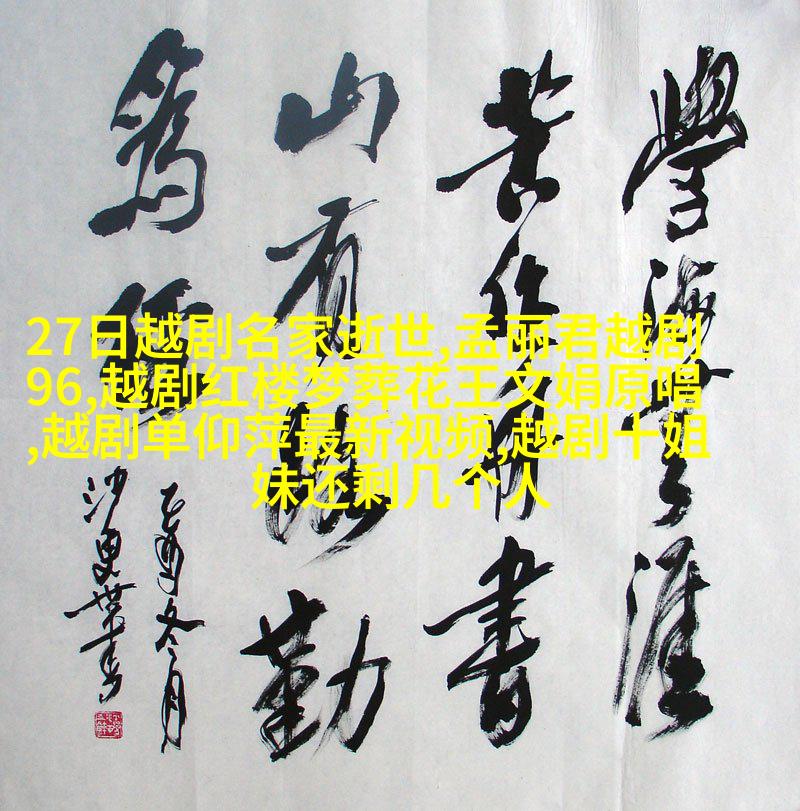 27日越剧名家逝世,孟丽君越剧
96,越剧红楼梦葬花王文娟原唱
,越剧单仰萍最新视频,越剧十姐
妹还剩几个人
學海無涯
苦作舟書
山有路勤
為徑
乙酉冬月
沙更世書